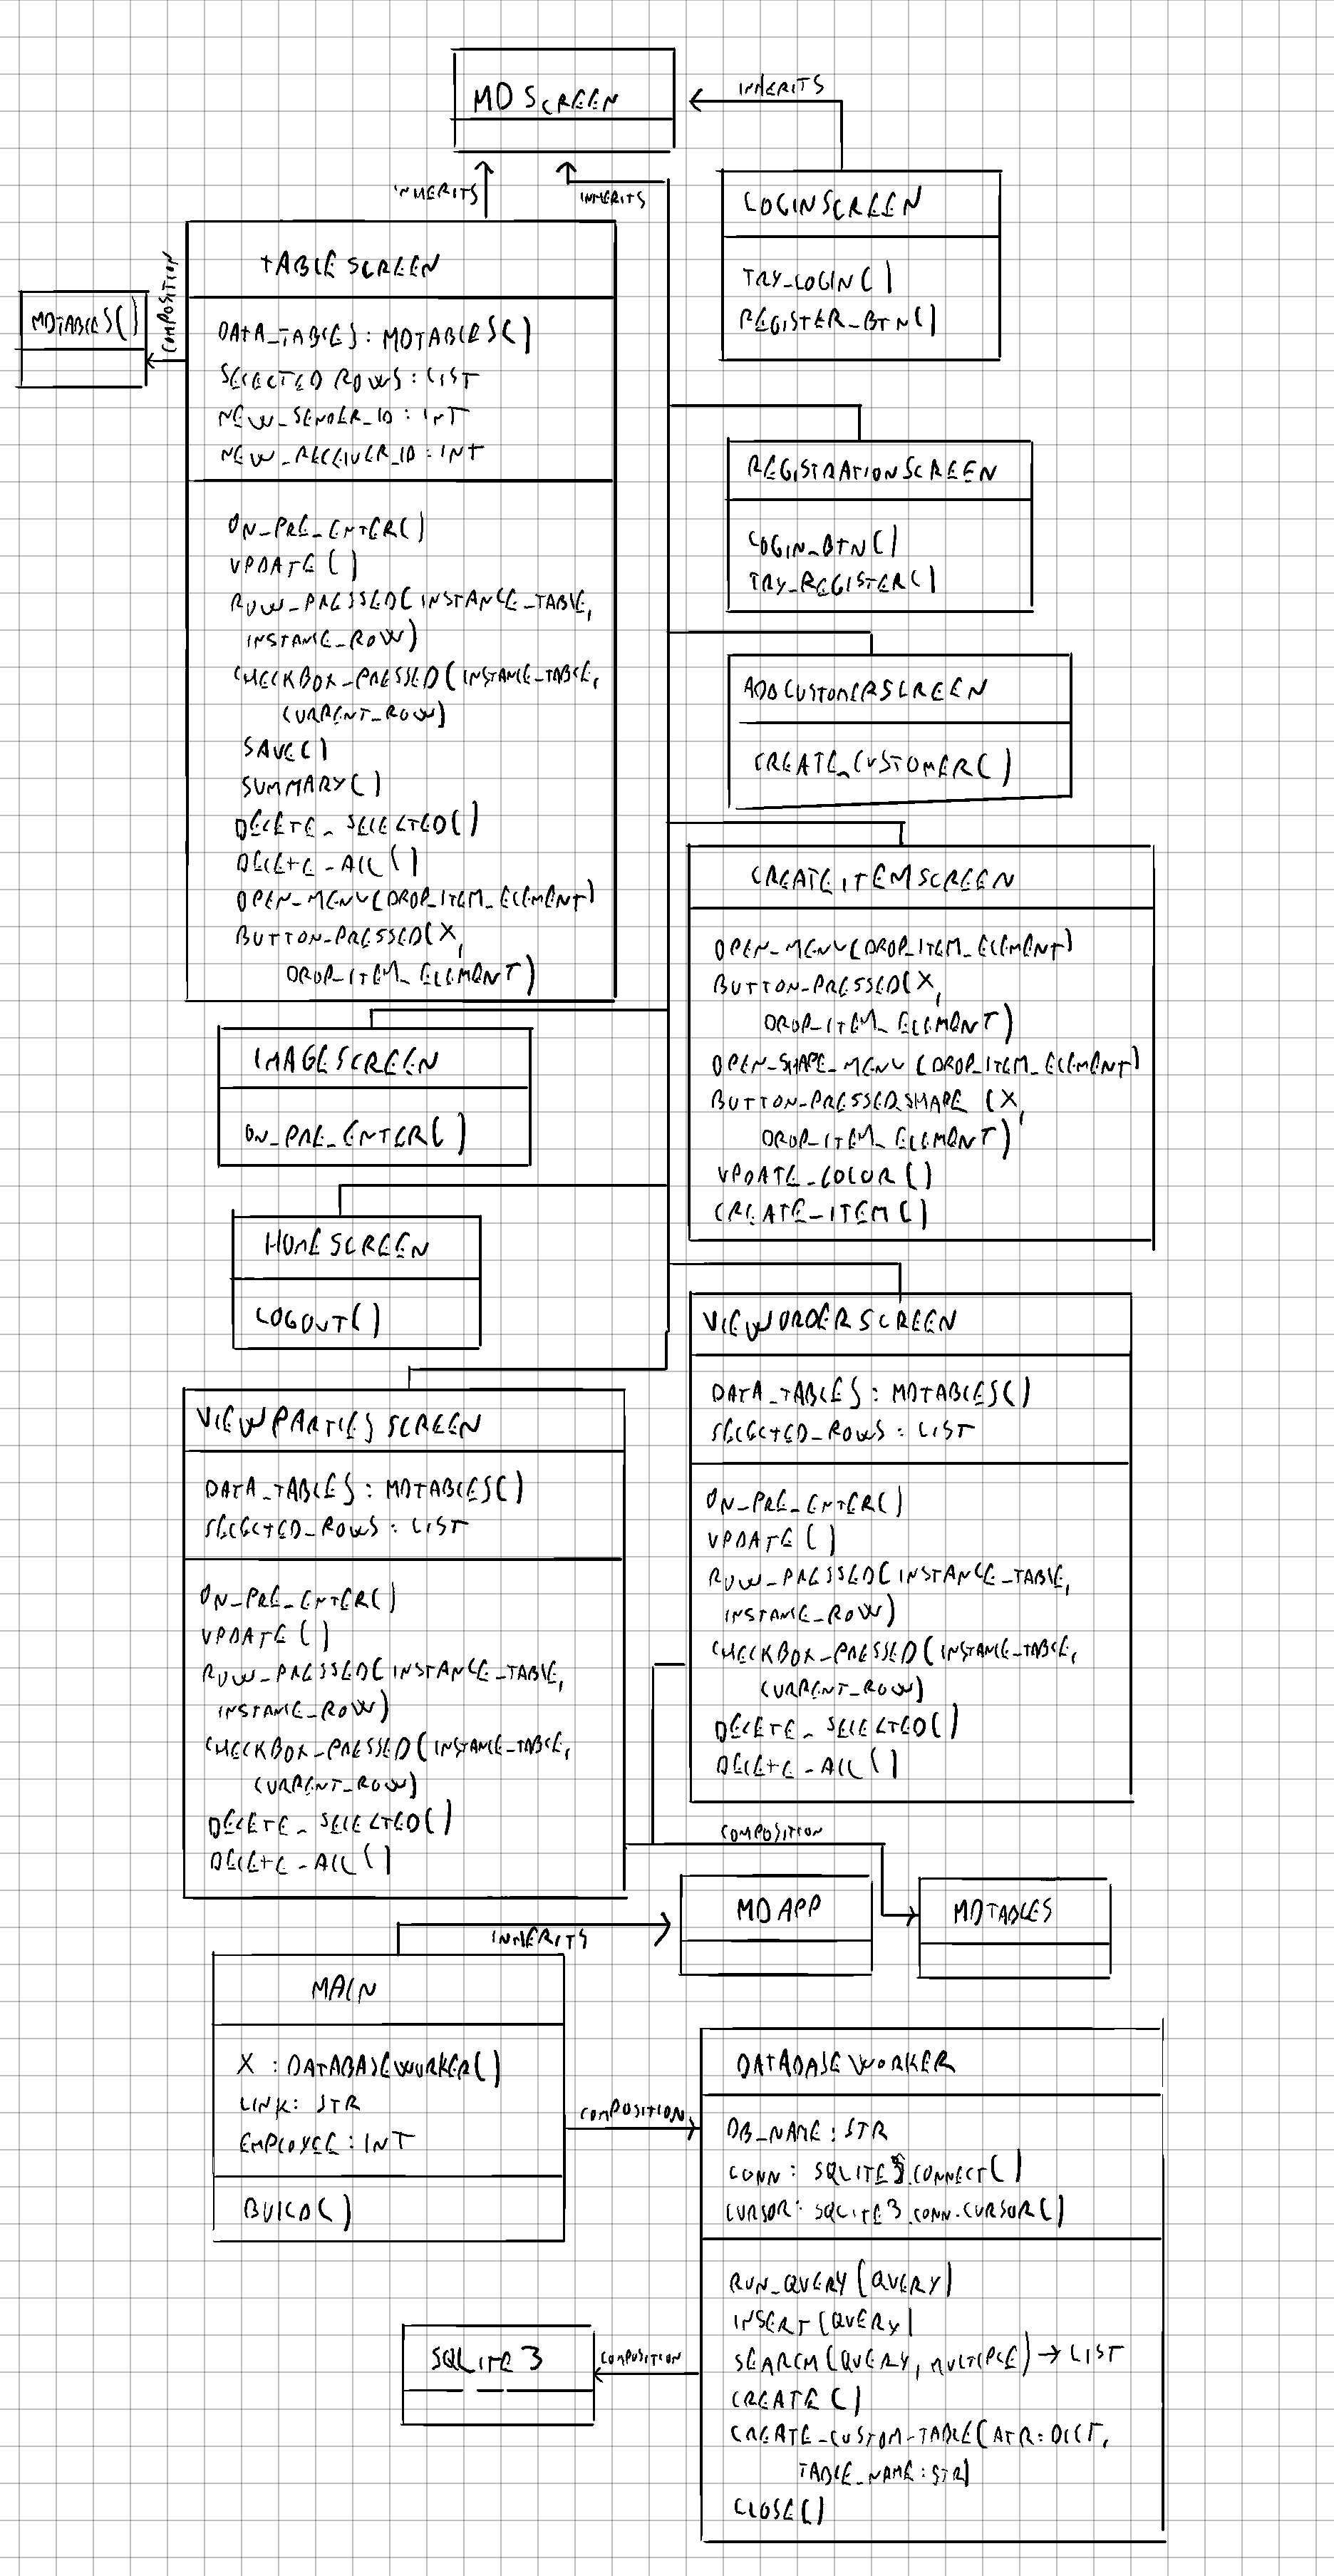 MDSCREEN
INHERITS
INHERITS
INHERITS
LOGINSCREEN
TRY_LOGIN()
REGISTER_BTN()
TABLESCREEN
COMPOSITION
MDTABLES()
DATA_TABLES: MDTABLES()
SELECTED ROWS: LIST
NEW_SENDER_ID: INT
NEW_RECEIVER_ID: INT
ON_PRE_ENTER()
UPDATE()
ROW_PRESSED(INSTANCE_TABLE,
INSTANCE_ROW)
CHECKBOX_PRESSED(INSTANCE_TABLE,
CURRENT_ROW)
SAVE()
SUMMARY()
DELETE_SELECTED()
DELETE_ALL()
OPEN_MENU(DROP_ITEM_ELEMENT)
BUTTON_PRESSED(X,
DROP_ITEM_ELEMENT)
REGISTRATIONSCREEN
LOGIN_BTN()
TRY_REGISTER()
ADDCUSTOMERSCREEN
CREATE_CUSTOMER()
CREATEITEMSCREEN
OPEN_MENU(DROP_ITEM_ELEMENT)
BUTTON_PRESSED(X,
DROP_ITEM_ELEMENT)
OPEN_SHAPE_MENU(DROP_ITEM_ELEMENT)
BUTTON_PRESSED_SHAPE(X,
DROP_ITEM_ELEMENT)
UPDATE_COLOR()
CREATE_ITEM()
IMAGESCREEN
ON_PRE_ENTER()
HOMESCREEN
LOGOUT()
VIEWORDERSCREEN
DATA_TABLES: MDTABLES()
SELECTED_ROWS: LIST
ON_PRE_ENTER()
UPDATE()
ROW_PRESSED(INSTANCE_TABLE,
INSTANCE_ROW)
CHECKBOX_PRESSED(INSTANCE_TABLE,
CURRENT_ROW)
DELETE_SELECTED()
DELETE_ALL()
VIEWPARTIESSCREEN
DATA_TABLES: MDTABLES()
SELECTED_ROWS: LIST
ON_PRE_ENTER()
UPDATE()
ROW_PRESSED(INSTANCE_TABLE,
INSTANCE_ROW)
CHECKBOX_PRESSED(INSTANCE_TABLE,
CURRENT_ROW)
DELETE_SELECTED()
DELETE_ALL()
COMPOSITION
MDAPP
MDTABLES
INHERITS
MAIN
X: DATABASEWORKER()
LINK: STR
EMPLOYEE: INT
BUILD()
COMPOSITION
DATABASEWORKER
DB_NAME: STR
CONN: SQLITE3.CONNECT()
CURSOR: SQLITE3.CONN.CURSOR()
RUN_QUERY(QUERY)
INSERT(QUERY)
SEARCH(QUERY, MULTIPLE) → LIST
CREATE()
CREATE_CUSTOM_TABLE(ATR: DICT,
TABLE_NAME: STR)
CLOSE()
COMPOSITION
SQLITE3